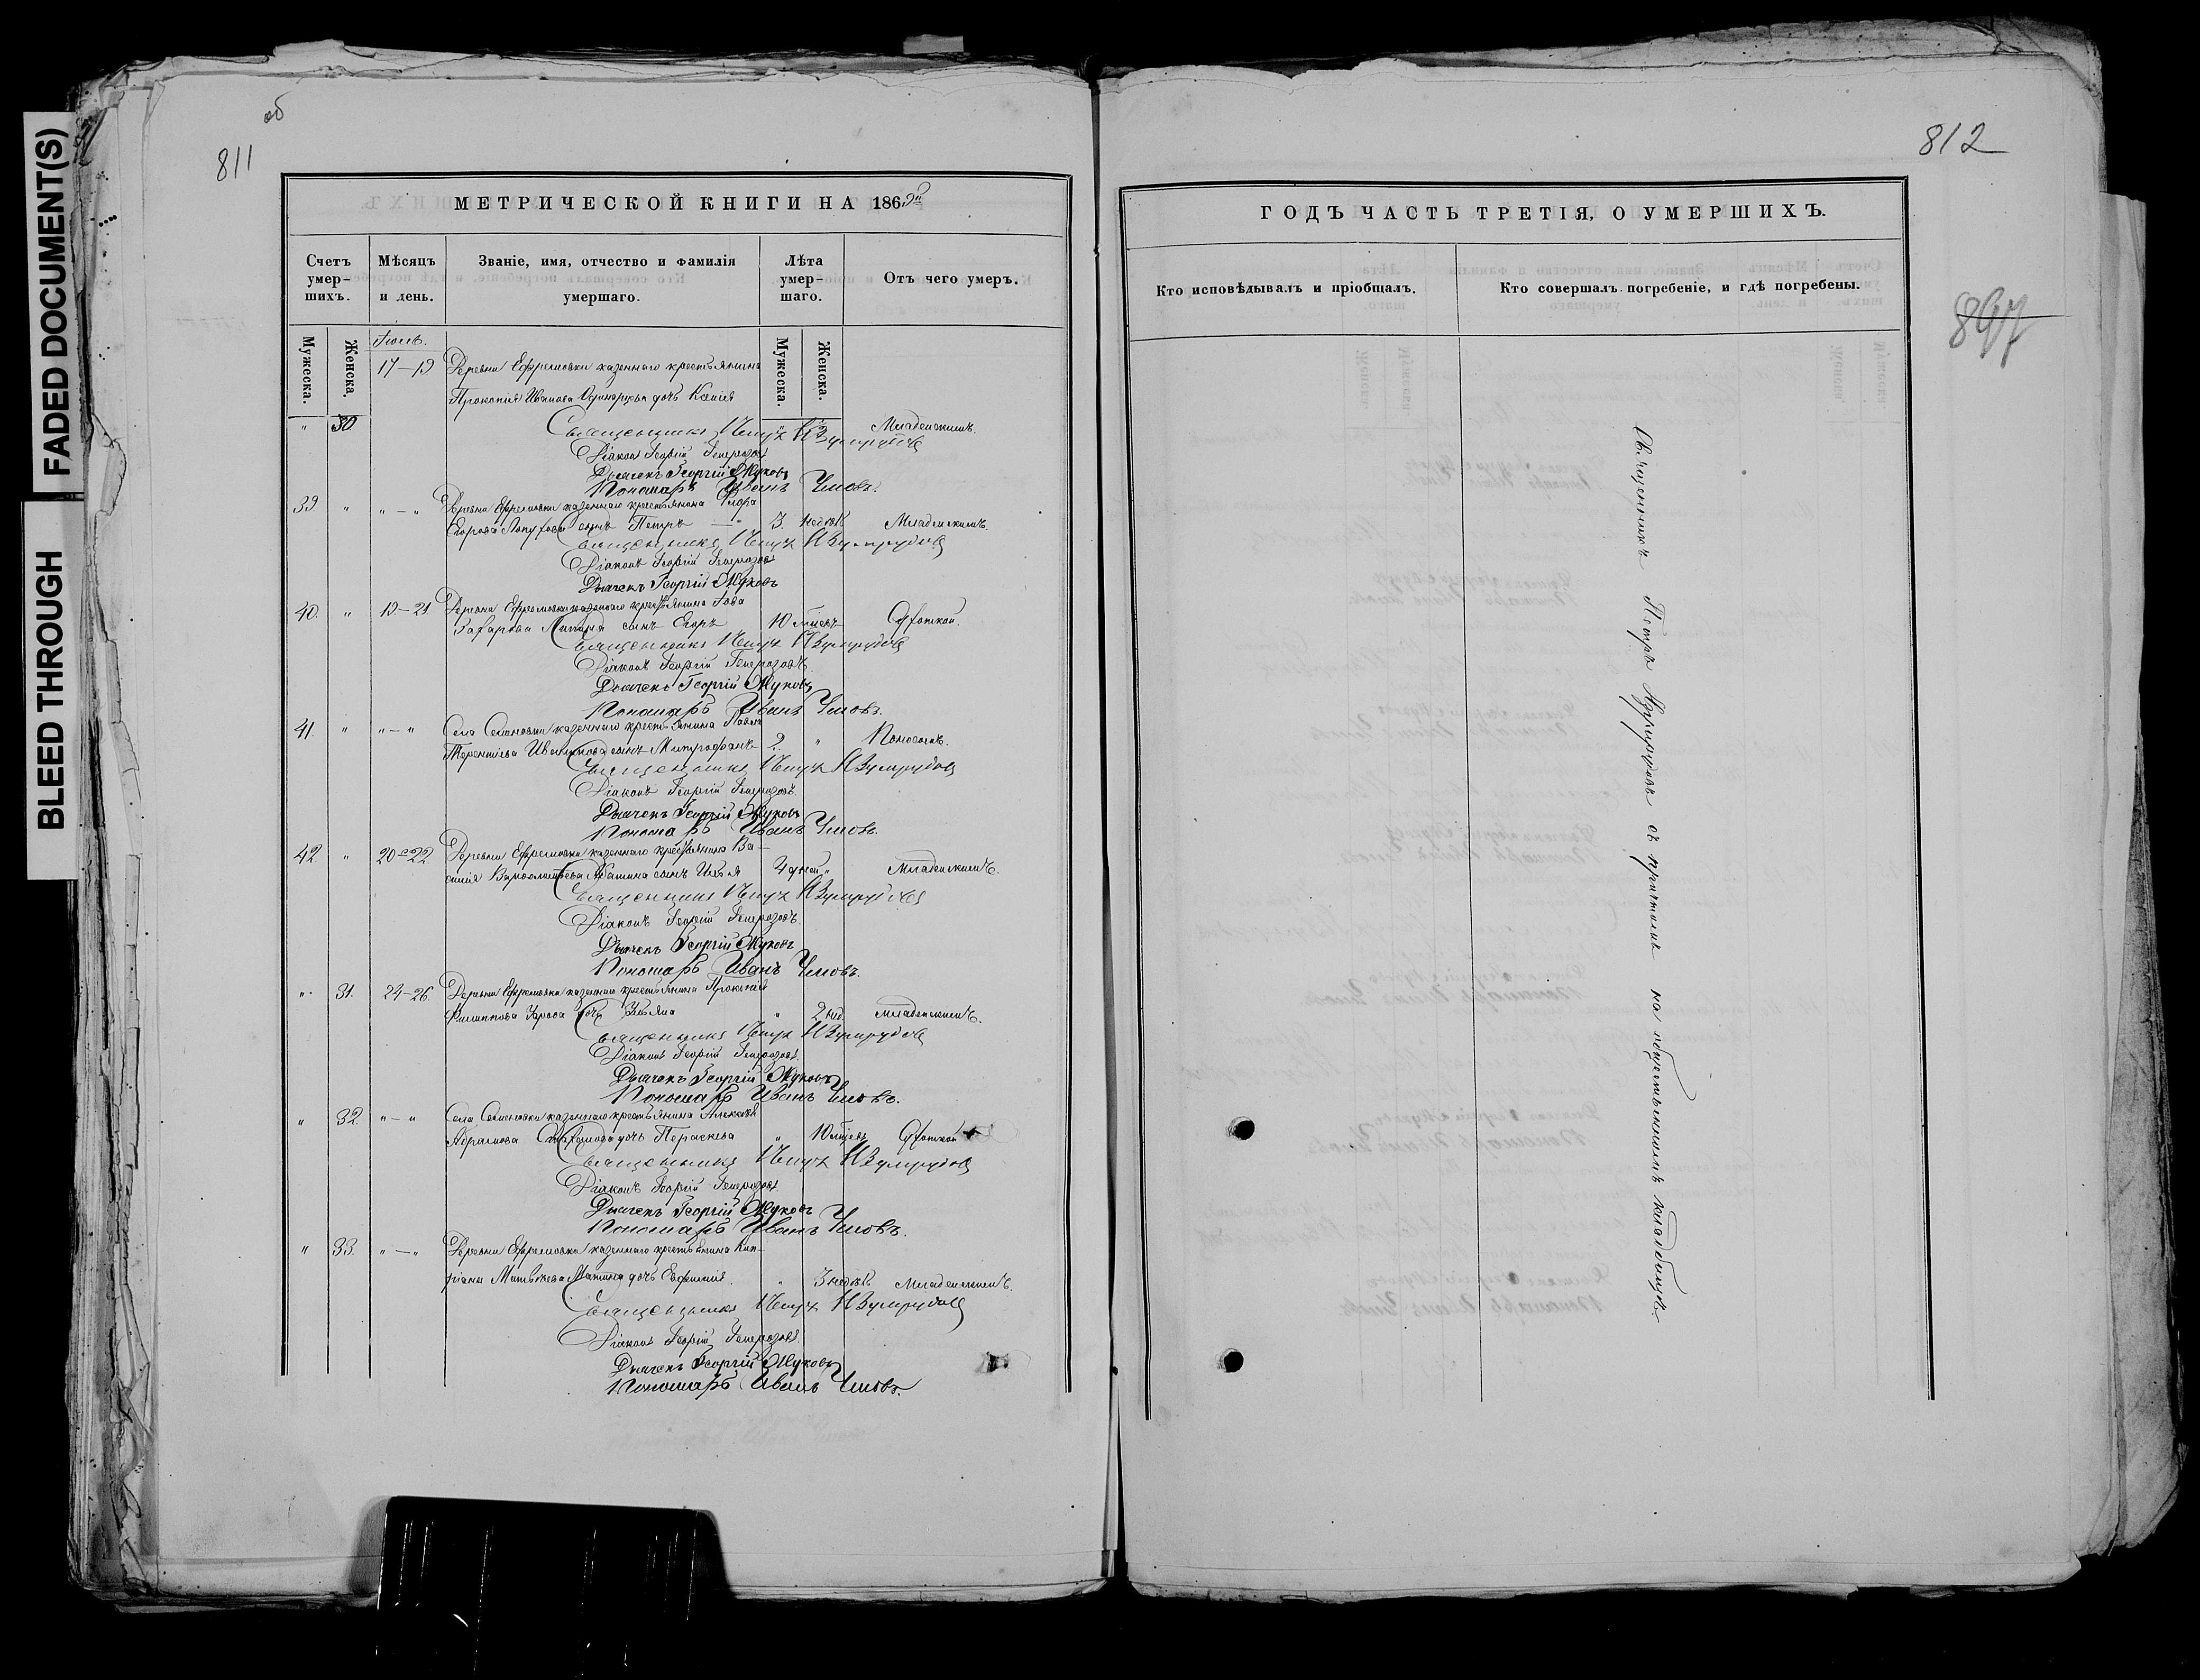 FADED DOCUMENT(S)
BLEED THROUGH
об
811
МЕТРИЧЕСКОЙ КНИГИ НА 1869й
Счетъ умер-шихъ.
Мѣсяцъ и день.
Званіе, имя, отчество и фамилія умершаго.
Лѣта умер-шаго.
Отъ чего умеръ.
Мужеска.
Женска.
Мужеска.
Женска.
Іюль.
17–19 Деревни Ефремовки казеннаго крестьянина
Прокопія Иванова дочь Ксенія
" 30 Младенскимъ.
Священникъ Петръ Изумрудовъ
Діаконъ Георгій Генерозовъ
Дьячекъ Георгій Жуковъ
Пономарь Иванъ Умовъ.
39 " "–" Деревни Ефремовки казеннаго крестьянина
Егорова сынъ Петръ 3. недѣли Младенскимъ.
Священникъ Петръ Изумрудовъ
Діаконъ Георгій Генерозовъ
Дьячекъ Георгій Жуковъ
40. " 19–21 Деревни Ефремовки казеннаго крестьянина
Захарова сынъ Егоръ 10 мѣсяц
Священникъ Петръ Изумрудовъ
Діаконъ Георгій Генерозовъ.
Дьячекъ Георгій Жуковъ
Пономарь Иванъ Умовъ.
41. " "–" Села Семеновки казеннаго крестьянина Павла
Терентіева сынъ Митрофанъ 2. " Поносомъ.
Священникъ Петръ Изумрудовъ
Діаконъ Георгій Генерозовъ.
Дьячекъ Георгій Жуковъ
Пономарь Иванъ Умовъ.
42 " 20–22 Деревни Ефремовки казеннаго крестьянина Ва-
силія Варѳоломѣева сынъ Илья 4 дней " Младенскимъ.
Священникъ Петръ Изумрудовъ
Діаконъ Георгій Генерозовъ.
Дьячекъ Георгій Жуковъ
Пономарь Иванъ Умовъ.
" 31. 24–26. Деревни Ефремовки казеннаго крестьянина Прокопія
Филиппова дочь " 2 нед. Младенскимъ.
Священникъ Петръ Изумрудовъ
Діаконъ Георгій Генерозовъ
Дьячекъ Георгій Жуковъ
Пономарь Иванъ Умовъ.
" 32. "–" Села Семеновки казеннаго крестьянина Алексѣя
Абрамова дочь Параскева " 10 мѣсяц
Священникъ Петръ Изумрудовъ
Діаконъ Георгій Генерозовъ
Дьячекъ Георгій Жуковъ
Пономарь Иванъ Умовъ.
" 33. "–" Деревни Ефремовки казеннаго крестьянина Кип-
ріана Матвѣева дочь Евфимія. " 3 недѣли Младенскимъ.
Священникъ Петръ Изумрудовъ
Діаконъ Георгій Генерозовъ.
Дьячекъ Георгій Жуковъ
Пономарь Иванъ Умовъ.
812
897
ГОДЪ ЧАСТЬ ТРЕТІЯ, О УМЕРШИХЪ.
Кто исповѣдывалъ и пріобщалъ.
Кто совершалъ погребеніе, и гдѣ погребены.
Священникъ Петръ Изумрудовъ съ причтомъ на общественномъ кладбищѣ.